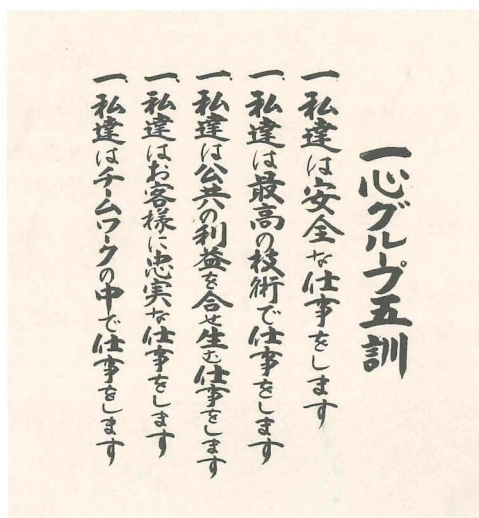 一心グループ五訓
一 私達は安全な仕事をします
一 私達は最高の技術で仕事をします
一 私達は公共の利益を合せ生む仕事をします
一 私達はお客様に忠実な仕事をします
一 私達はチームワークの中で仕事をします